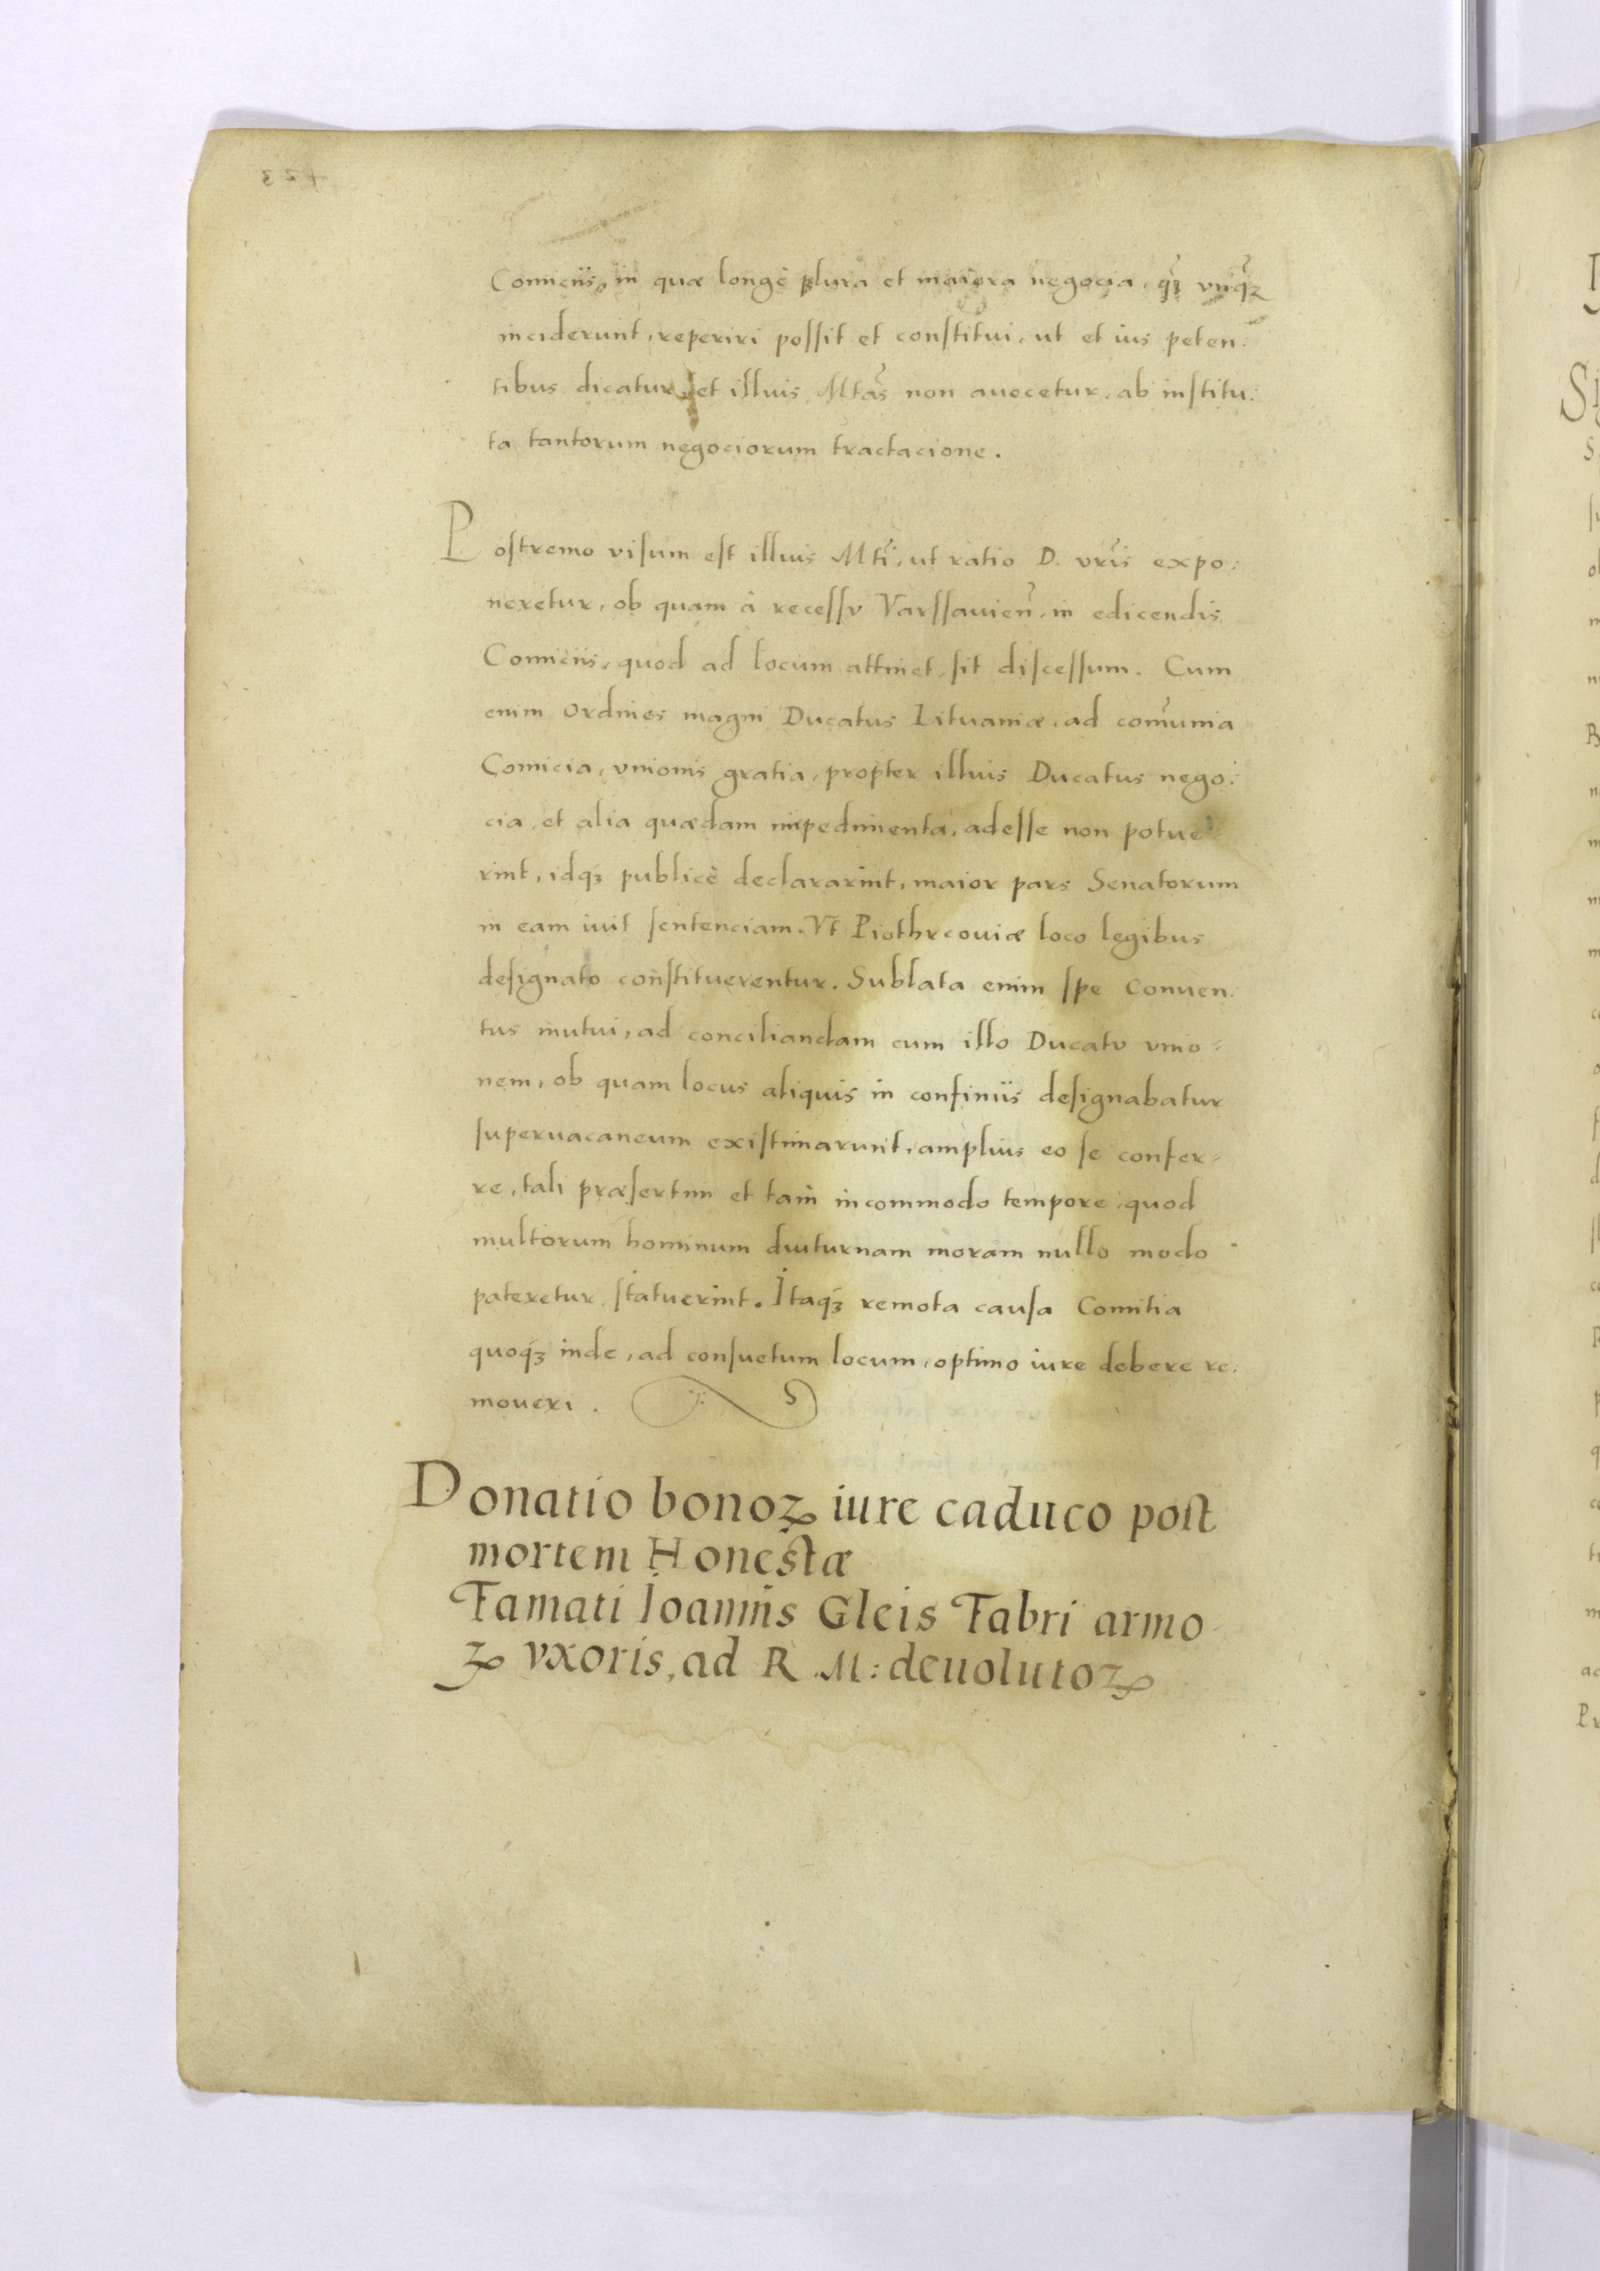 Comiciis, in quæ longè plura et maiora negocia, q̃ȝ vnq̃ȝ
inciderunt, reperiri possit et constitui, ut et ius peten:
tibus dicatur, et illius Mtãs non auocetur, ab institu:
ta tantorum negociorum tractacione.
Postremo visum est illius Mtĩ, ut ratio D. vrĩs expo:
neretur, ob quam à recessu Varssauien̄, in edicendis
Comiciis, quod ad locum attinet, sit discessum. Cum
enim Ordines magni Ducatus Lituaniæ, ad com̃unia
Comicia, vnionis gratia, propter illius Ducatus nego:
cia, et alia quædam impedimenta, adesse non potue
rint, idqȝ publicè declararint, maior pars Senatorum
in eam iuit sentenciam. Vt Piothrcouiæ loco legibus
designato constituerentur. Sublata enim spe Conuen:
tus mutui, ad conciliandam cum illo Ducatu vnio:
nem, ob quam locus aliquis in confiniis designabatur
superuacaneum existimarunt, amplius eo se confer:
re, tali præsertim et tam incommodo tempore, quod
multorum hominum diuturnam moram nullo modo
pateretur, statuerint. Itaqȝ remota causa Comitia
quoqȝ inde, ad consuetum locum, optimo iure debere re:
moueri.
Donatio bonoꝝ iure caduco post
mortem Honestæ
Famati Ioannis Gleis Fabri armo
ꝝ vxoris, ad R. M: deuolutoꝝ